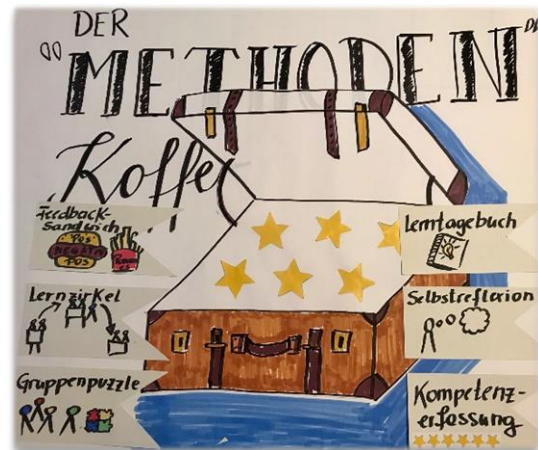 DER
"METHODEN"
Koffer
Feedback-
Sandwich
POS
NEGATIV
POS
Lernzirkel
Gruppenpuzzle
Lerntagebuch
Selbstreflexion
Kompetenz-
erfassung